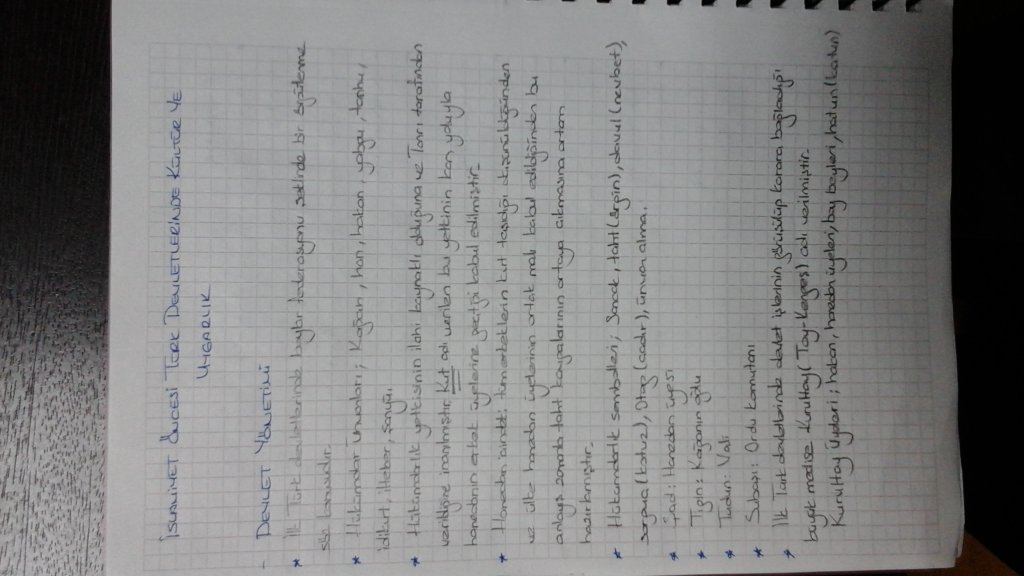 İSLAMİYET ÖNCESİ TÜRK DEVLETLERİNDE KÜLTÜR VE
UYGARLIK
- DEVLET YÖNETİMİ
* İlk Türk devletlerinde boylar federasyonu şeklinde bir örgütlenme
söz konusudur.
* Hükümdar ünvanları; Kağan, han, hakan, yabgu, tanhu,
idikut, ilteber, şanyü.
* Hükümdarlık yetkisinin ilahi kaynaklı olduğuna ve Tanrı tarafından
verildiğine inanılmıştır. Kut adı verilen bu yetkinin kan yoluyla
hanedanın erkek üyelerine geçtiği kabul edilmiştir.
* Hanedan ailedeki tüm erkeklerin kut taşıdığı düşünüldüğünden
ve ülke hanedan üyelerinin ortak malı kabul edildiğinden bu
anlayış zamanla taht kavgalarının ortaya çıkmasına ortam
hazırlamıştır.
* Hükümdarlık sembolleri; Sancak, taht (örgin), davul (nevbet),
sorguç (kotuz), Otağ (çadır), ünvan alma.
* Şad: Hanedan üyesi
* Tigin: Kağanın oğlu
* Tudun: Vali
* Subaşı: Ordu komutanı
* İlk Türk devletlerinde devlet işlerinin görüşülüp karara bağlandığı
büyük meclise Kurultay (Toy-Kengeş) adı verilmiştir.
Kurultay Üyeleri; hakan, hanedan üyeleri, boy beyleri, hatun (katun)